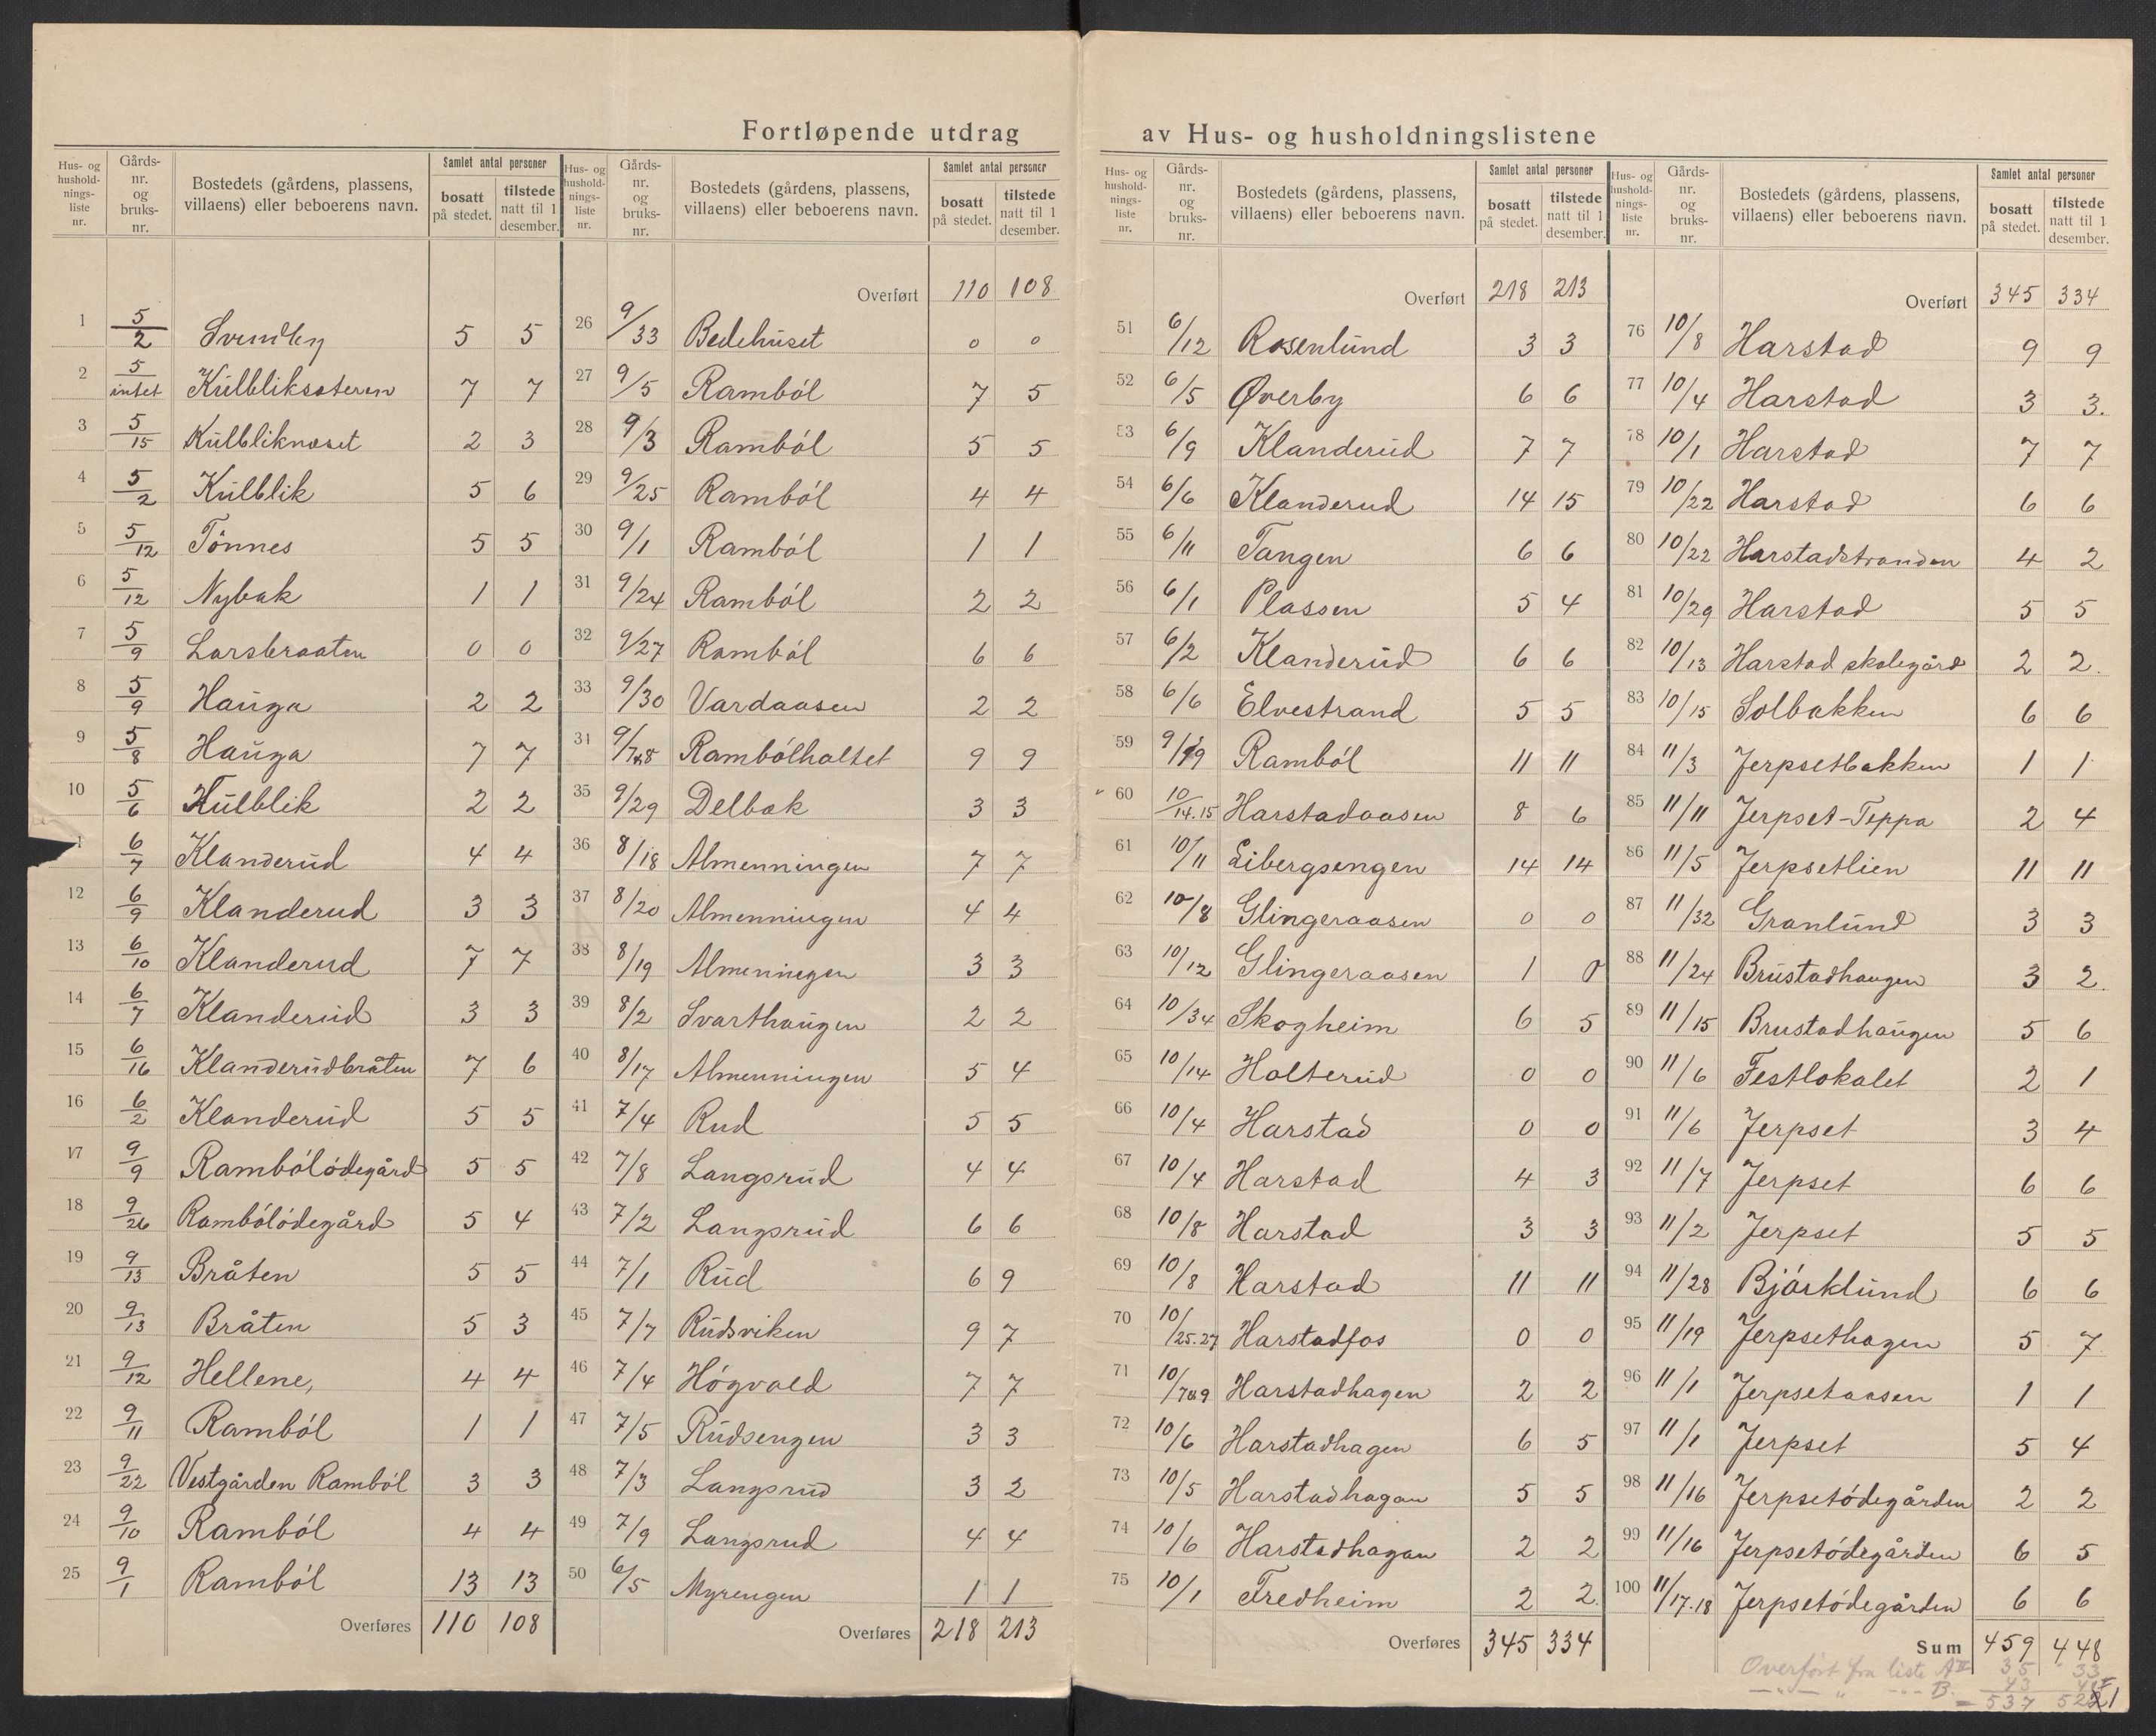 Fortløpende utdrag av Hus- og husholdningslistene
Hus- og husholdnings- liste nr. | Gårds- nr. og bruks- nr. | Bostedets (gårdens, plassens, villaens) eller beboerens navn. | Samlet antal personer | bosatt på stedet. | tilstede natt til 1 desember.
1 5/2 Svendby 5 5
2 5/intet Kulbliksæteren 7 7
3 5/15 Kulbliknæset 2 3
4 5/2 Kulblik 5 6
5 5/12 Tönnes 5 5
6 5/12 Nybak 1 1
7 5/9 Larsbraaten 0 0
8 5/9 Hauga 2 2
9 5/8 Hauga 7 7
10 5/6 Kulblik 2 2
1 6/7 Klanderud 4 4
12 6/9 Klanderud 3 3
13 6/10 Klanderud 7 7
14 6/7 Klanderud 3 3
15 6/16 Klanderudbråten 7 6
16 6/2 Klanderud 5 5
17 9/9 Rambólódegård 5 5
18 9/26 Rambólódegård 5 4
19 9/13 Bråten 5 5
20 9/13 Bråten 5 3
21 9/12 Hellene, 4 4
22 9/11 Ramból 1 1
23 9/22 Vestgården Ramból 3 3
24 9/10 Ramból 4 4
25 9/1 Ramból 13 13
Overføres 110 108
Hus- og husholdnings- liste nr. | Gårds- nr. og bruks- nr. | Bostedets (gårdens, plassens, villaens) eller beboerens navn. | Samlet antal personer | bosatt på stedet. | tilstede natt til 1 desember.
Overført 110 108
26 9/33 Bedehuset 0 0
27 9/5 Ramból 7 5
28 9/3 Ramból 5 5
29 9/25 Ramból 4 4
30 9/1 Ramból 1 1
31 9/24 Ramból 2 2
32 9/27 Ramból 6 6
33 9/30 Vardaasen 2 2
34 9/7&8 Rambólholtet 9 9
35 9/29 Delbak 3 3
36 8/18 Almenningen 7 7
37 8/20 Almenningen 4 4
38 8/19 Almenningen 3 3
39 8/2 Svarthaugen 2 2
40 8/17 Almenningen 5 4
41 7/4 Rud 5 5
42 7/8 Langsrud 4 4
43 7/2 Langsrud 6 6
44 7/1 Rud 6 9
45 7/7 Rudsviken 9 7
46 7/4 Högvold 7 7
47 7/5 Rudsengen 3 3
48 7/3 Langsrud 3 2
49 7/9 Langsrud 4 4
50 6/5 Myrengen 1 1
Overføres 218 213
Hus- og husholdnings- liste nr. | Gårds- nr. og bruks- nr. | Bostedets (gårdens, plassens, villaens) eller beboerens navn. | Samlet antal personer | bosatt på stedet. | tilstede natt til 1 desember.
Overført 218 213
51 6/12 Rosenlund 3 3
52 6/5 Øverby 6 6
53 6/9 Klanderud 7 7
54 6/6 Klanderud 14 15
55 6/11 Tangen 6 6
56 6/1 Plassen 5 4
57 6/2 Klanderud 6 6
58 6/6 Elvestrand 5 5
59 9/19 Ramból 11 11
60 10/14.15 Harstadaasen 8 6
61 10/11 Libergsengen 14 14
62 10/8 Glingeraasen 0 0
63 10/12 Glingeraasen 1 0
64 10/34 Skogheim 6 5
65 10/14 Holterud 0 0
66 10/4 Harstad 0 0
67 10/4 Harstad 4 3
68 10/8 Harstad 3 3
69 10/8 Harstad 11 11
70 10/25.27 Harstadfos 0 0
71 10/7&9 Harstadhagen 2 2
72 10/6 Harstadhagen 6 5
73 10/5 Harstadhagan 5 5
74 10/6 Harstadhagan 2 2
75 10/1 Fredheim 2 2.
Overføres 345 334
Hus- og husholdnings- liste nr. | Gårds- nr. og bruks- nr. | Bostedets (gårdens, plassens, villaens) eller beboerens navn. | Samlet antal personer | bosatt på stedet. | tilstede natt til 1 desember.
Overført 345 334
76 10/8 Harstad 9 9
77 10/4 Harstad 3 3.
78 10/1 Harstad 7 7
79 10/22 Harstad 6 6
80 10/22 Harstadstranden 4 2
81 10/29 Harstad 5 5
82 10/13 Harstad skolegård 2 2.
83 10/15 Solbakken 6 6
84 11/3 Jerpsetbakken 1 1
85 11/11 Jerpset-Teppa 2 4
86 11/5 Jerpsetlien 11 11
87 11/32 Granlund 3 3
88 11/24 Brustadhaugen 3 2.
89 11/15 Brustadhaugen 5 6
90 11/6 Festlokalet 2 1
91 11/6 Jerpset 3 4
92 11/7 Jerpset 6 6
93 11/2 Jerpset 5 5
94 11/28 Bjórklund 6 6
95 11/19 Jerpsethagen 5 7
96 11/1 Jerpsetaasen 1 1
97 11/1 Jerpset 5 4
98 11/16 Jerpsetódegården 2 2
99 11/16 Jerpsetódegården 6 5
100 11/17.18 Jerpsetódegården 6 6
Sum 459 448
Overført fra liste A II 35 33
B. 43
= 537